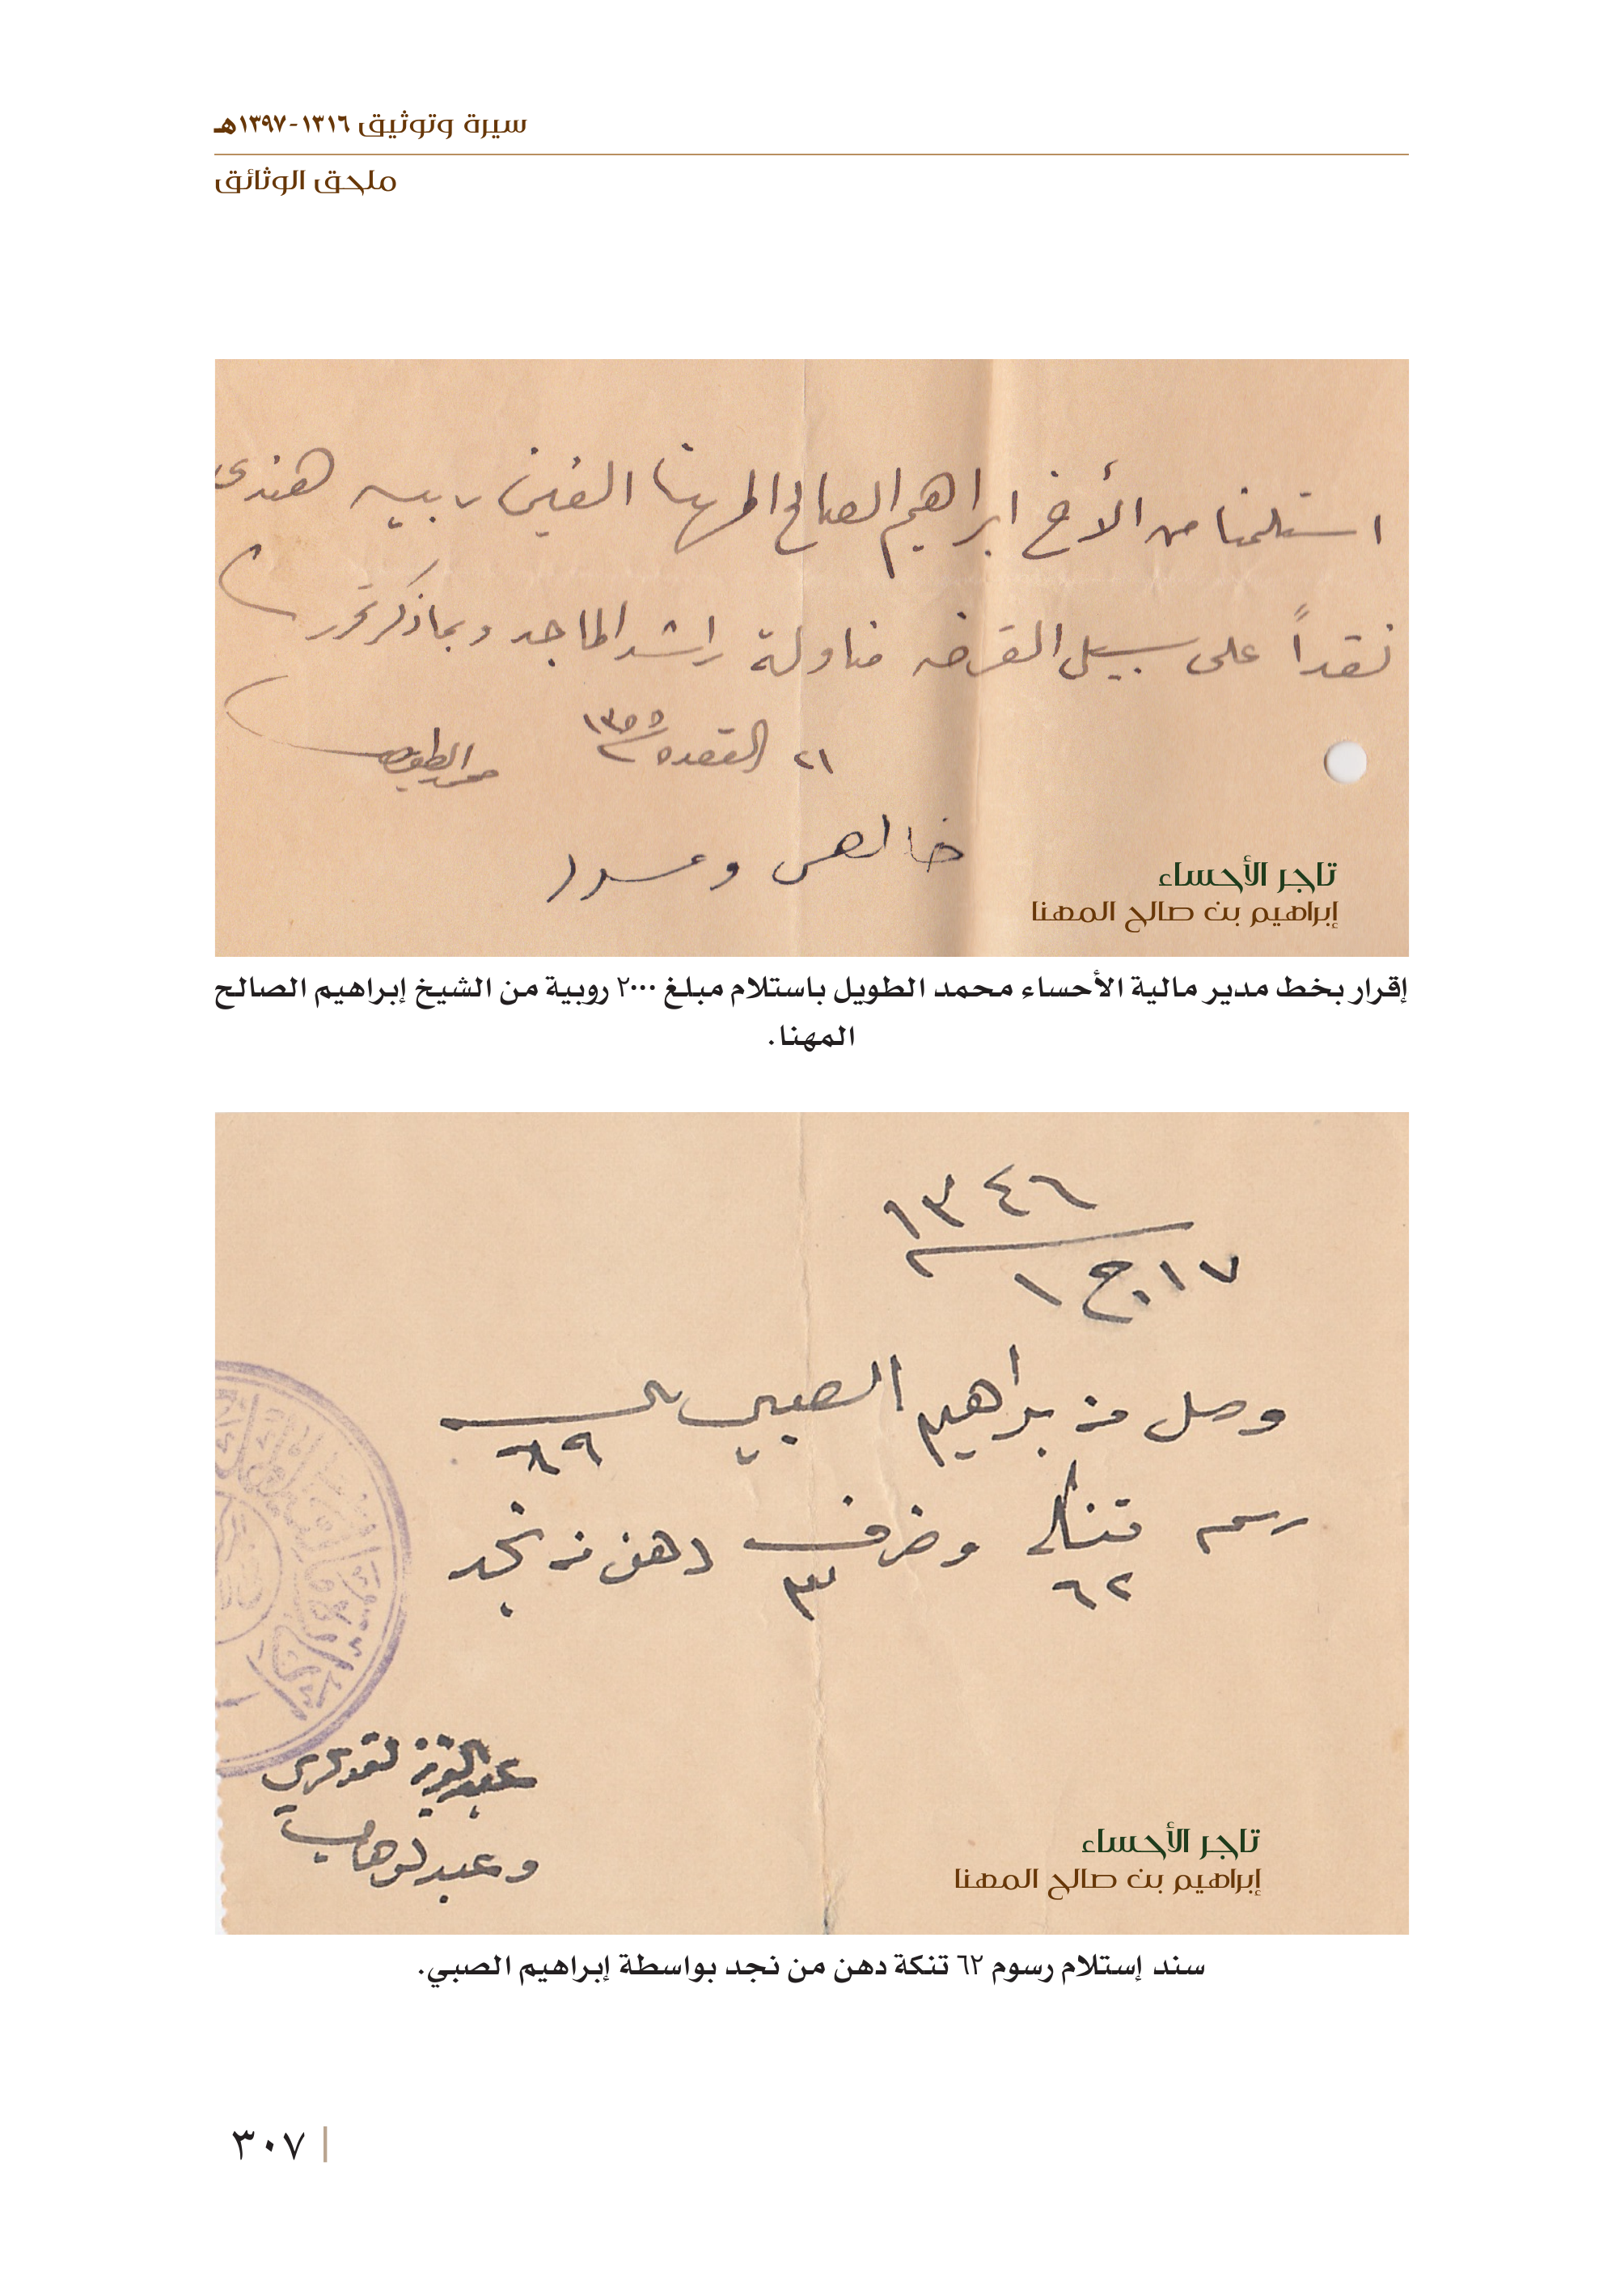 سيرة وتوثيق ١٣١٦-١٣٩٧هـ
ملحق الوثائق
استلمنا من الأخ ابراهيم الصالح المهنا الفين ربيه هندي
نقداً على سبيل القرضه مناولة راشد الماجد وبما ذكر تحرر
٢١ القعده ١٣٥٥
محمد الطويل
خالص ومسدد
تاجر الأحساء
إبراهيم بن صالح المهنا
إقرار بخط مدير مالية الأحساء محمد الطويل باستلام مبلغ ٢٠٠٠ روبية من الشيخ إبراهيم الصالح
المهنا.
١٣٤٦
١٧ ج ١
وصل من براهيم الصبي
رسم تنك ٦٢ وضرف ٣ دهن من نجد
عبدالعزيز القو
وعبدلوهاب
تاجر الأحساء
إبراهيم بن صالح المهنا
سند إستلام رسوم ٦٢ تنكة دهن من نجد بواسطة إبراهيم الصبي.
٣٠٧